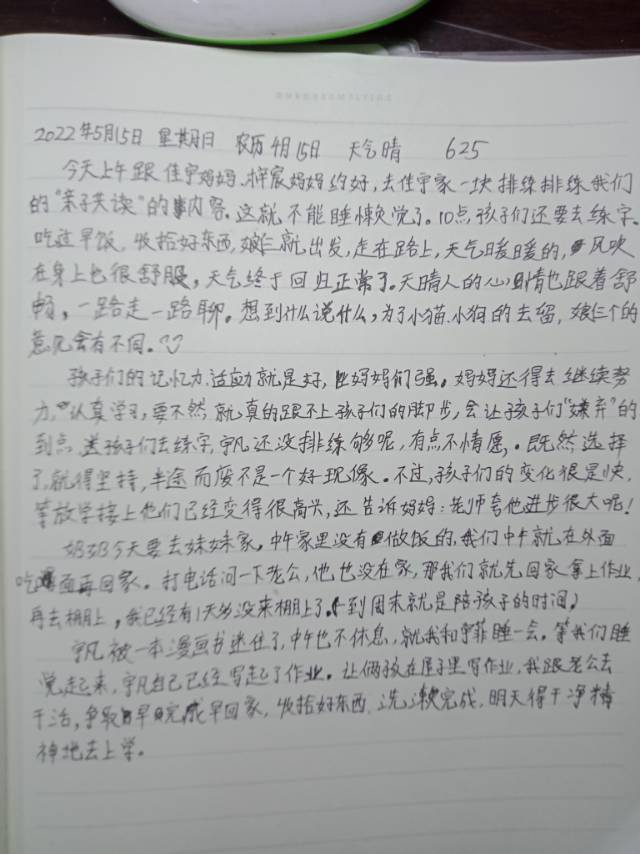 2022年5月15日 星期日 农历4月15日 天气晴 625
今天上午跟佳宁妈妈、梓宸妈妈约好,去佳宁家一块排练排练我们
的"亲子共读"的内容。这就不能睡懒觉了。10点,孩子们还要去练字。
吃过早饭,收拾好东西,娘仨就出发,走在路上,天气暖暖的,风吹
在身上也很舒服,天气终于回归正常了。天晴人的心情也跟着舒
畅,一路走一路聊。想到什么说什么,为了小猫、小狗的去留,娘仨个的
意见会有不同。
孩子们的记忆力、适应力就是好,比妈妈们强。妈妈还得去继续努
力,认真学习,要不然,就真的跟不上孩子们的脚步,会让孩子们"嫌弃"的
到点,送孩子们去练字,宁凡还没排练够呢,有点不情愿。既然选择
了,就得坚持,半途而废不是一个好现像。不过,孩子们的变化很是快,
等放学接上他们已经变得很高兴,还告诉妈妈:老师夸他进步很大呢!
奶奶今天要去妹妹家,中午家里没有做饭的,我们中午就在外面
吃面再回家。打电话问一下老公,他也没在家,那我们就先回家拿上作业,
再去棚上,我已经有1天多没来棚上了。(一到周末就是陪孩子的时间)
宁凡被一本漫画书迷住了,中午也不休息,就我和宁菲睡一会。等我们睡
觉起来,宁凡自己已经写起了作业。让俩孩在屋子里写作业,我跟老公去
干活,争取早早完成早回家,收拾好东西,洗漱完成,明天得干净精
神地去上学。